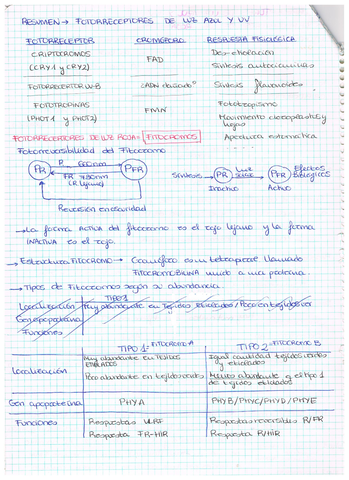 RESUMEN → FOTORRECEPTORES DE LUZ AZUL Y UV
FOTORRECEPTOR CROMÓFORO RESPUESTA FISIOLÓGICA
CRIPTOCROMOS FAD Des-etiolación
(CRY1 y CRY2) Síntesis antocianinas
FOTORRECEPTOR UV-B Síntesis flavonoides
FOTOTROPINAS FMN Fototropismo
(PHOT1 y PHOT2) Movimiento cloroplastos y
hojas
Apertura estomática
FOTORRECEPTORES DE LUZ ROJA = FITOCROMOS
Fotorreversibilidad del Fitocromo
R 660nm
PR PFR
FR 730nm
(R lejano)
Reversión en oscuridad
Síntesis → PR Luz PFR Efectos
Biológicos
Inactivo Activo
→ La forma ACTIVA del fitocromo es el rojo lejano y la forma
INACTIVA es el rojo.
→ Estructura FITOCROMO → Cromóforo es un tetrapirrol llamado
FITOCROMOBILINA unido a una proteína.
→ Tipos de Fitocromos según su abundancia.
TIPO 1
Localización Muy abundante en Tejidos Etiolados/Poco en tejidos
Gen apoproteína
Funciones
TIPO 1 = FITOCROMO A TIPO 2 = FITOCROMO B
Localización
Muy abundante en TEJIDOS
ETIOLADOS
Poco abundante en tejidos verdes
Igual cantidad tejidos verdes
y etiolados
Menos abundante q el tipo 1
de tejidos etiolados
Gen apoproteína PHYA PHYB/PHYC/PHYD/PHYE
Funciones Respuestas VLRF Respuestas reversibles R/FR
Respuesta FR-HIR Respuesta R/HIR